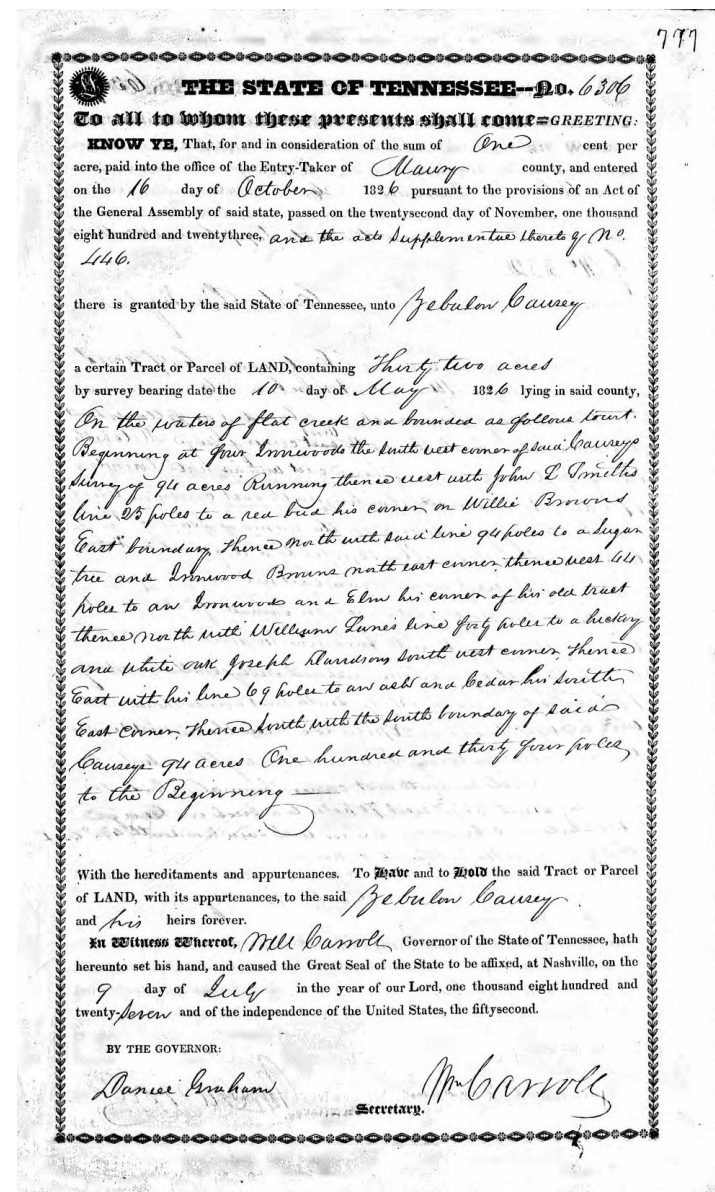 777
THE STATE OF TENNESSEE--No. 6306
To all to whom these presents shall come=GREETING:
KNOW YE, That, for and in consideration of the sum of One cent per
acre, paid into the office of the Entry-Taker of Maury county, and entered
on the 16 day of October 1826 pursuant to the provisions of an Act of
the General Assembly of said state, passed on the twentysecond day of November, one thousand
eight hundred and twentythree, and the acts Supplemental thereto by No.
446.
there is granted by the said State of Tennessee, unto Zebulon Causey
a certain Tract or Parcel of LAND, containing Thirty two acres
by survey bearing date the 10 day of May 1826 lying in said county,
On the waters of flat creek and bounded as follows towit.
Beginning at four Ironwoods the South west corner of said Causeys
Survey of 94 acres Running thence west with John L Smiths
line 25 poles to a red bud his corner on Willie Browns
East boundary, Thence North with said line 94 poles to a Sugar
tree and Ironwood Browns north east corner, thence west 44
poles to an Ironwood and Elm his corner of his old tract
thence north with William Lunes line forty poles to a hickory
and white oak Joseph Davidsons South west corner, Thence
East with his line 69 poles to an ash and Cedar his South
East corner, Thence South with the South boundary of said
Causeys 94 acres One hundred and thirty four poles
to the Beginning
With the hereditaments and appurtenances. To Have and to Hold the said Tract or Parcel
of LAND, with its appurtenances, to the said Zebulon Causey
and his heirs forever.
In Witness Whereof, Will Carroll Governor of the State of Tennessee, hath
hereunto set his hand, and caused the Great Seal of the State to be affixed, at Nashville, on the
9 day of July in the year of our Lord, one thousand eight hundred and
twenty-seven and of the independence of the United States, the fiftysecond.
BY THE GOVERNOR:
Daniel Graham Wm Carroll
Secretary.